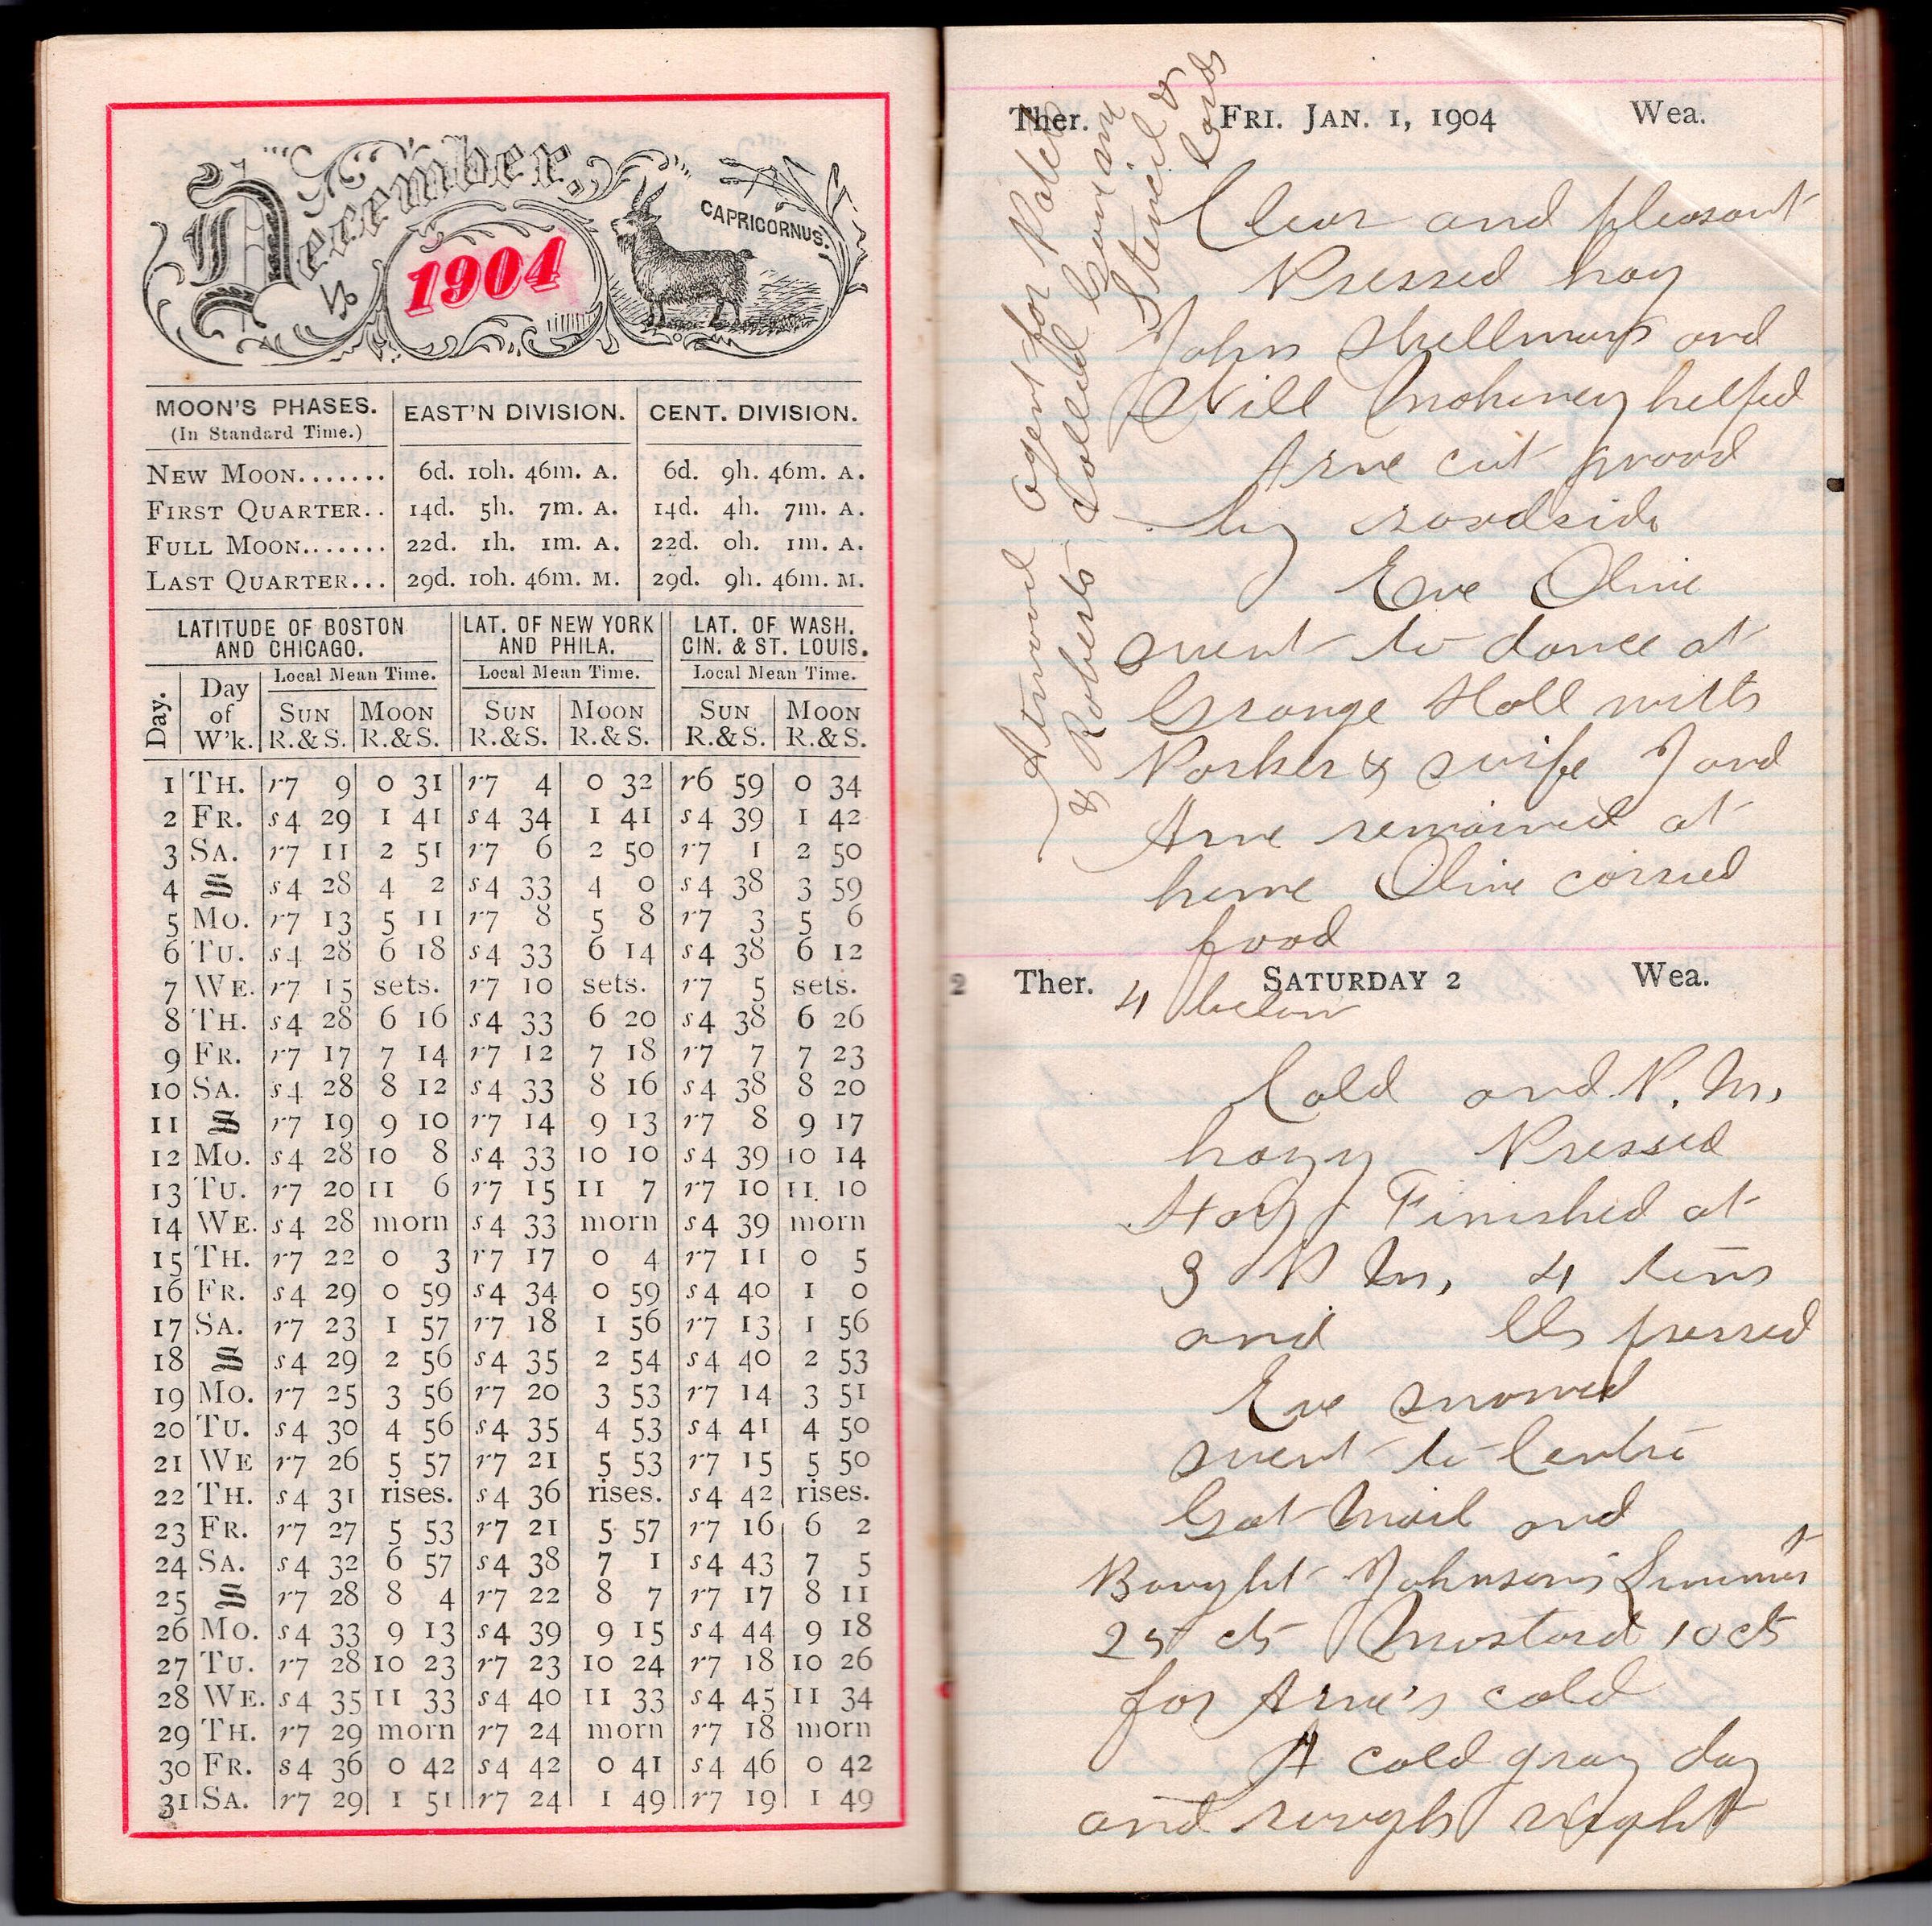 December,
1904
CAPRICORNUS.
MOON'S PHASES. EAST'N DIVISION. CENT. DIVISION.
(In Standard Time.)
NEW MOON....... 6d. 10h. 46m. A. 6d. 9h. 46m. A.
FIRST QUARTER.. 14d. 5h. 7m. A. 14d. 4h. 7m. A.
FULL MOON....... 22d. 1h. 1m. A. 22d. 0h. 1m. A.
LAST QUARTER... 29d. 10h. 46m. M. 29d. 9h. 46m. M.
LATITUDE OF BOSTON LAT. OF NEW YORK LAT. OF WASH.
AND CHICAGO. AND PHILA. CIN. & ST. LOUIS.
Local Mean Time. Local Mean Time. Local Mean Time.
Day. Day of W'k. SUN MOON SUN MOON SUN MOON
R.&S. R.&S. R.&S. R.&S. R.&S. R.&S.
1 TH. r7 9 0 31 r7 4 0 32 r6 59 0 34
2 FR. s4 29 1 41 s4 34 1 41 s4 39 1 42
3 SA. r7 11 2 51 r7 6 2 50 r7 1 2 50
4 S s4 28 4 2 s4 33 4 0 s4 38 3 59
5 MO. r7 13 5 11 r7 8 5 8 r7 3 5 6
6 TU. s4 28 6 18 s4 33 6 14 s4 38 6 12
7 WE. r7 15 sets. r7 10 sets. r7 5 sets.
8 TH. s4 28 6 16 s4 33 6 20 s4 38 6 26
9 FR. r7 17 7 14 r7 12 7 18 r7 7 7 23
10 SA. s4 28 8 12 s4 33 8 16 s4 38 8 20
11 S r7 19 9 10 r7 14 9 13 r7 8 9 17
12 MO. s4 28 10 8 s4 33 10 10 s4 39 10 14
13 TU. r7 20 11 6 r7 15 11 7 r7 10 11 10
14 WE. s4 28 morn s4 33 morn s4 39 morn
15 TH. r7 22 0 3 r7 17 0 4 r7 11 0 5
16 FR. s4 29 0 59 s4 34 0 59 s4 40 1 0
17 SA. r7 23 1 57 r7 18 1 56 r7 13 1 56
18 S s4 29 2 56 s4 35 2 54 s4 40 2 53
19 MO. r7 25 3 56 r7 20 3 53 r7 14 3 51
20 TU. s4 30 4 56 s4 35 4 53 s4 41 4 50
21 WE r7 26 5 57 r7 21 5 53 r7 15 5 50
22 TH. s4 31 rises. s4 36 rises. s4 42 rises.
23 FR. r7 27 5 53 r7 21 5 57 r7 16 6 2
24 SA. s4 32 6 57 s4 38 7 1 s4 43 7 5
25 S r7 28 8 4 r7 22 8 7 r7 17 8 11
26 MO. s4 33 9 13 s4 39 9 15 s4 44 9 18
27 TU. r7 28 10 23 r7 23 10 24 r7 18 10 26
28 WE. s4 35 11 33 s4 40 11 33 s4 45 11 34
29 TH. r7 29 morn r7 24 morn r7 18 morn
30 FR. s4 36 0 42 s4 42 0 41 s4 46 0 42
31 SA. r7 29 1 51 r7 24 1 49 r7 19 1 49
Ther. FRI. JAN. 1, 1904 Wea.
Clear and pleasant
Pressed hay
John and
Will Mohiney helped
Arne cut wood
by roadside
Eve Olive
went to dance at
Grange Hall with
Parker & wife I and
Arne remained at
home Olive carried
food
Atwood agent for
& Roberts called Gave me
Stencil &
Cards
2 Ther. SATURDAY 2 Wea.
4 below
Cold and P. M.
hazy Pressed
Hay Finished at
3 P M, 4 tons
and lbs pressed
Eve snowed
went to Centre
Got Mail and
Bought Johnson's Linimt
25 cts Mustard 10 cts
for Arne's cold
A cold gray day
and rough night